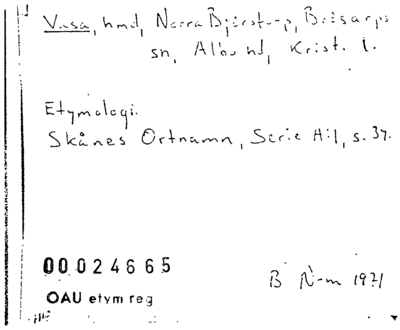 Vasa, hmd, Norra Björstorp, Brösarps
sn, Albo hd, Krist. l.
Etymologi.
Skånes Ortnamn, Serie A:1, s. 34.
00024665
B N-m 1971
OAU etym reg